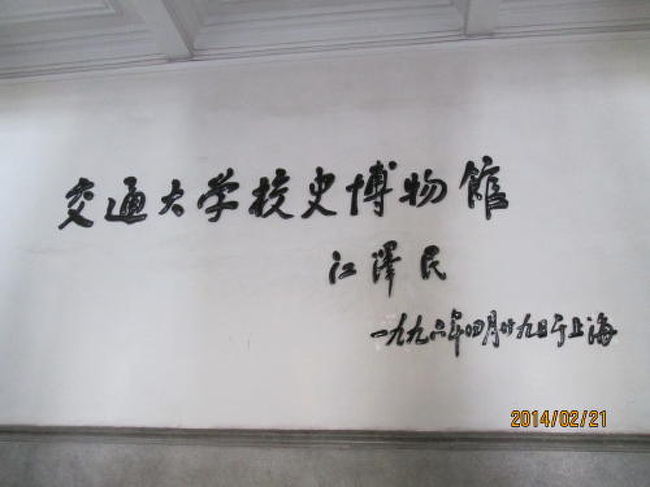 交通大学校史博物馆
江澤民
一九九六年四月廿九日于上海
2014/02/21